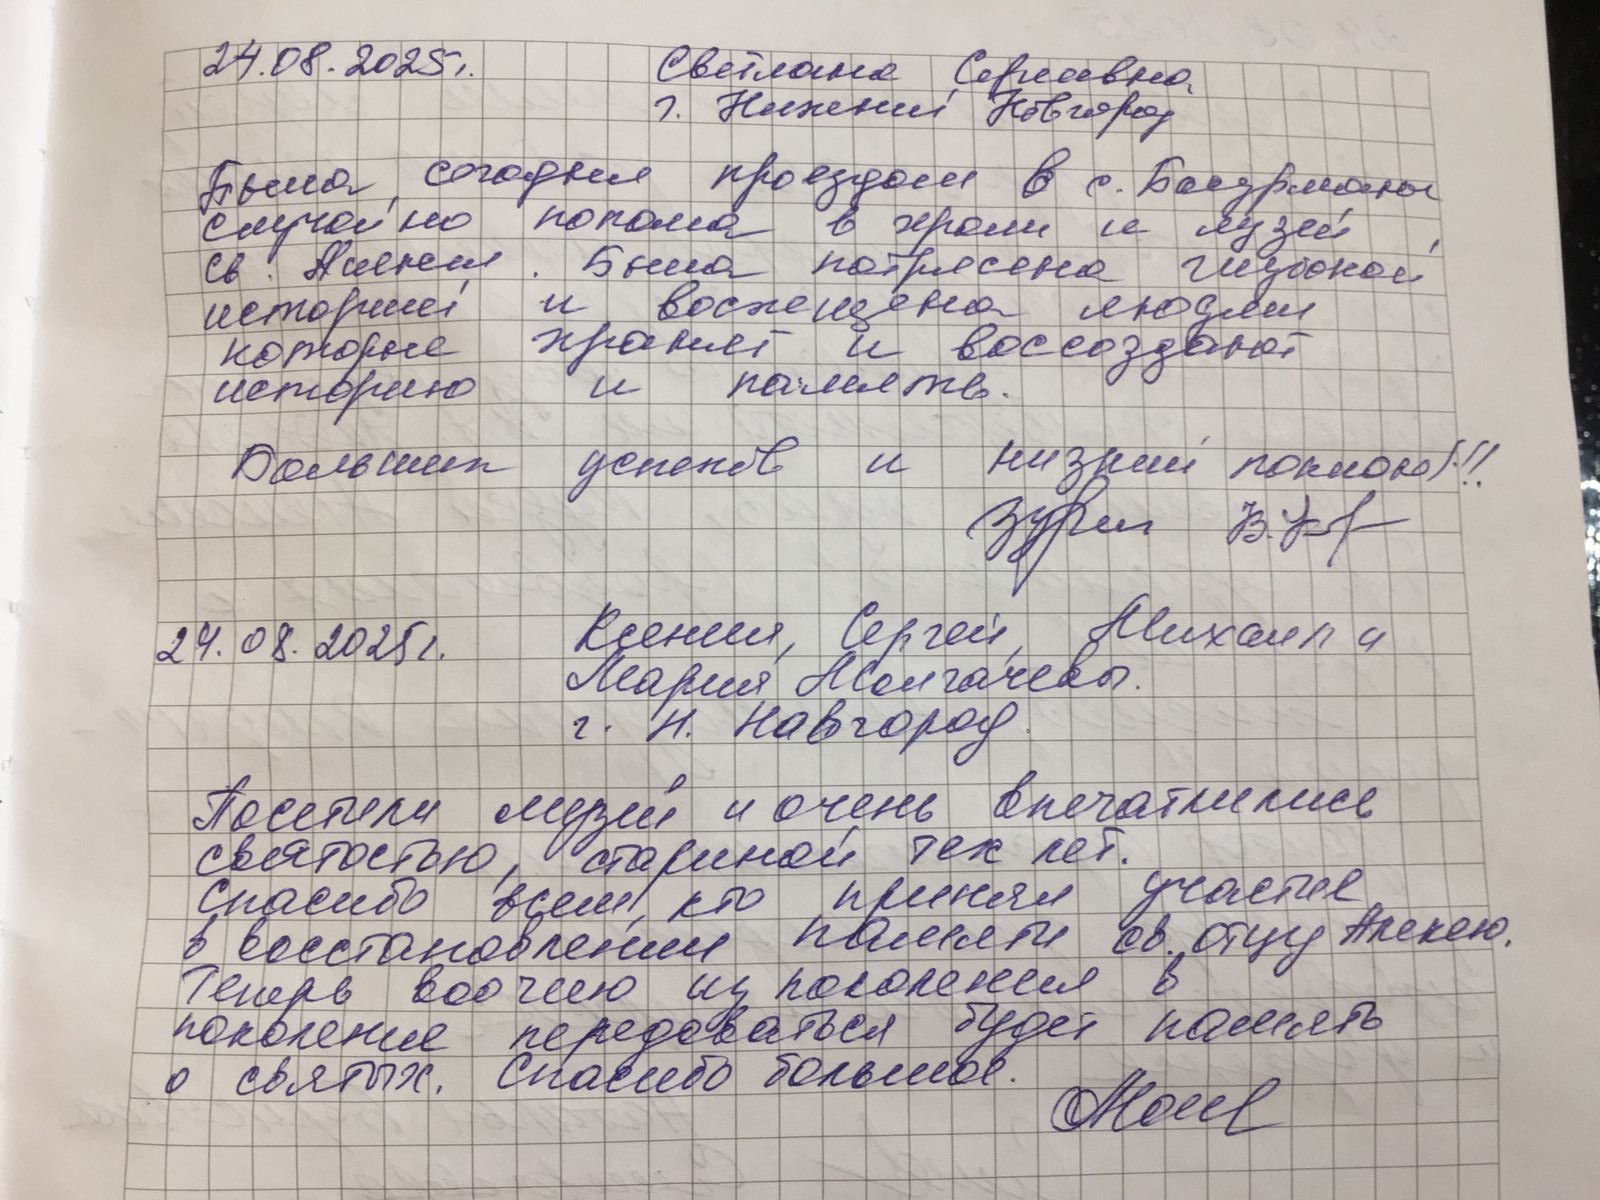 24.08.2025г.
Светлана Сергеевна
г. Нижний Новгород
Была сегодня проездом в с. Бахурманы
случайно попала в храм и музей
св. Алексия. Была потрясена глубокой
историей и восхищена людьми
которые хранят и воссоздают
историю и память.
Больших успехов и низкий поклон!!!
24.08.2025г.
Ксения, Сергей, Михаил и
Мария Молгачевы.
г. Н. Навгород.
Посетили музей и очень впечатлились
святостью, стариной тех лет.
Спасибо всем, кто принял участие
в восстановлении памяти св. отцу Алексею.
Теперь воочию из поколения в
поколение передоваться будет память
о святых. Спасибо большое.